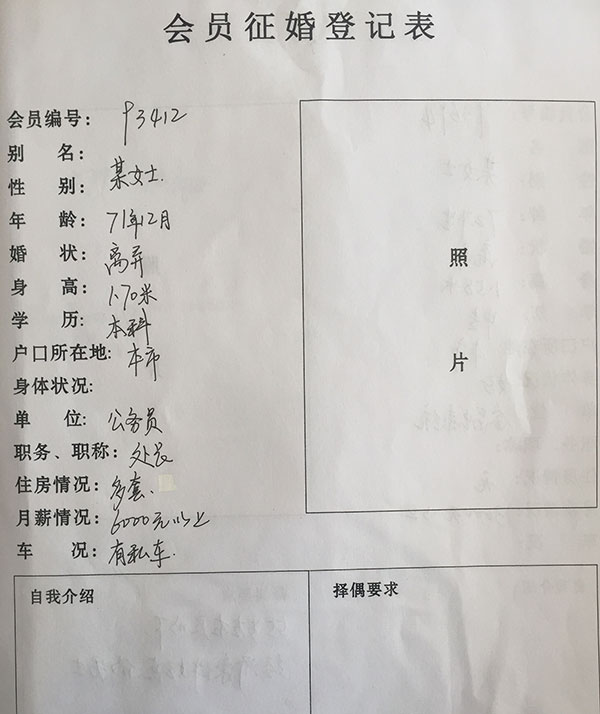 会员征婚登记表
会员编号： 93412
别 名：
性 别： 某女士.
年 龄： 71年12月
婚 状： 离异
身 高： 1.70米
学 历： 本科
户口所在地: 本市
身体状况:
单 位: 公务员
职务、职称: 处长
住房情况: 多套.
月薪情况: 6000元以上
车 况: 有私车.
照
片
自我介绍
择偶要求